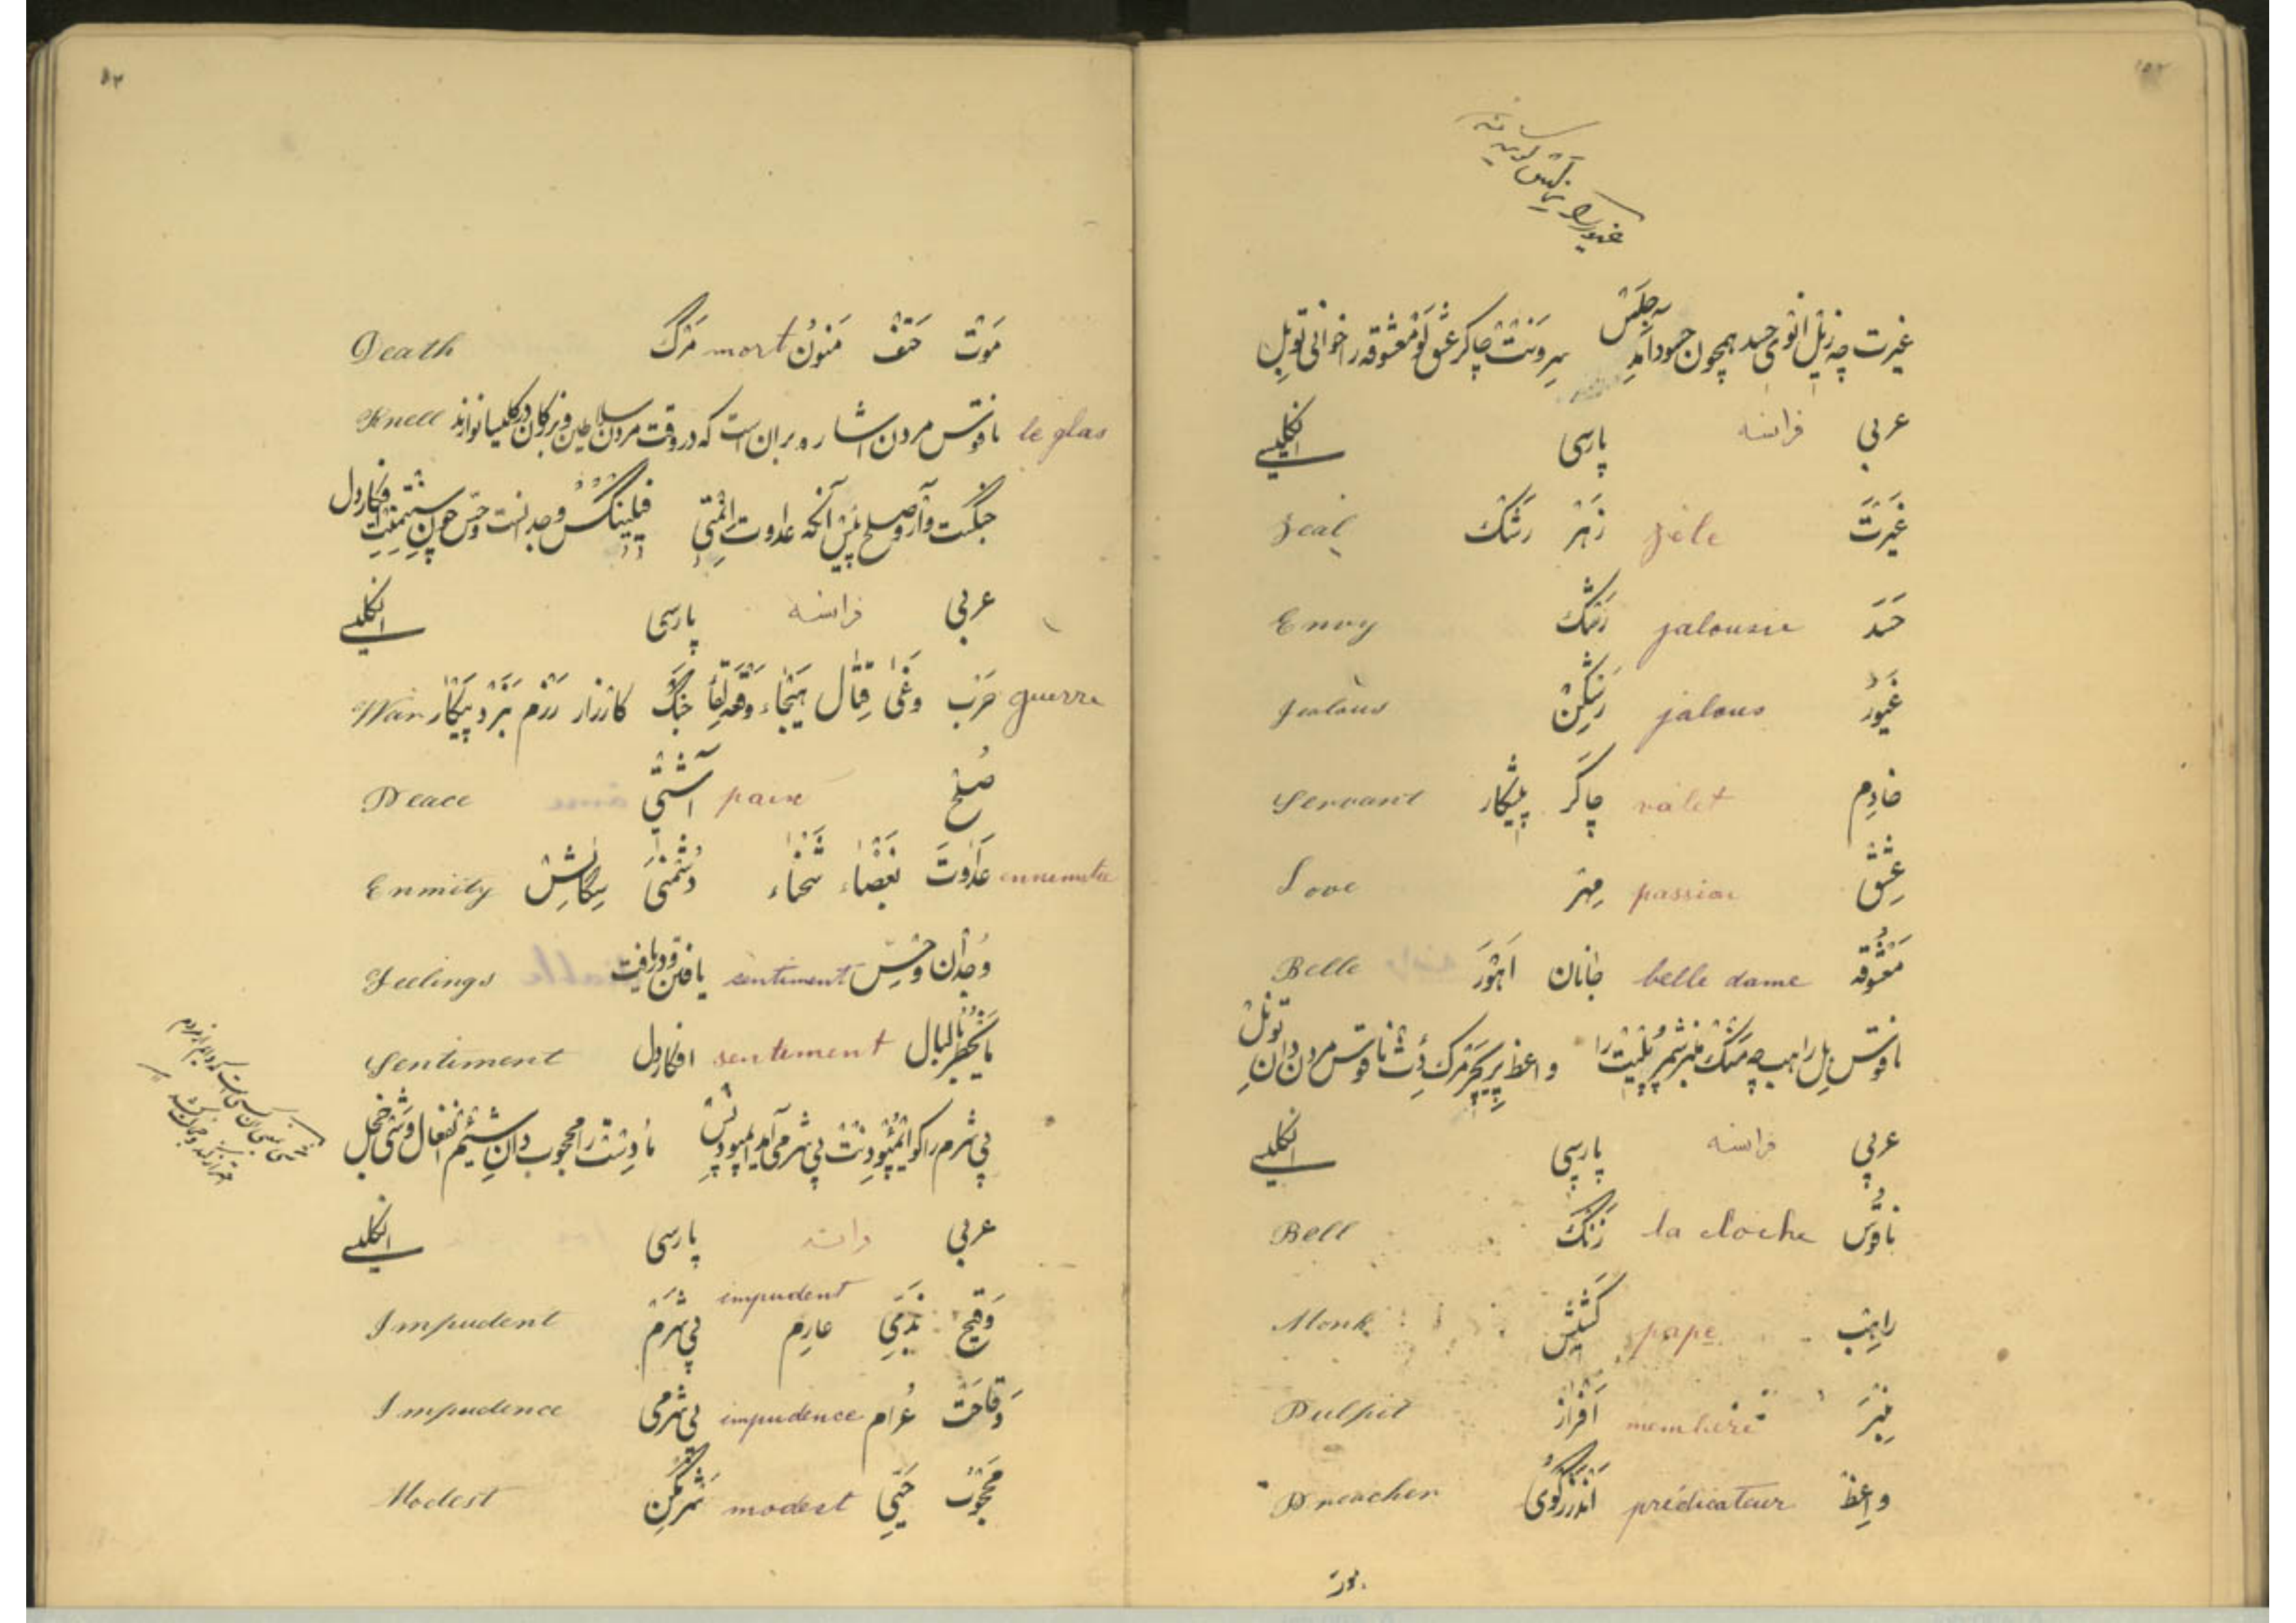 غیرت چه زیل انوی حسد همچون حسود آمد جلس سرونت چاکر عشق لو معشوقه را خوانی تو بل
عربی فرانسه پارسی انگلیسی
غَیرَت zèle زهر رشک Zeal
حَسَد jalousie رشک Envy
غَیُور jalous رشکین Jealous
خادِم valet چاکر پیشکار Servant
عِشْق passion مِهر Love
مَعْشُوقه belle dame جانان Belle
ناقوس بل راهب چه منک منبر شمر پلپیت را واعظ پریچر مرک دث ناقوس مردن دان تو نل
عربی فرانسه پارسی انگلیسی
ناقُوس la cloche زَنک Bell
راهِب pape کشیش Monk
مِنْبَر membere افراز Pulpit
واعِظ prédicateur اندرزگوی Preacher
مَوت حَتف مَنُون mort مَرک Death
le glas ناقوس مردن اشاره بران است که در وقت مردن سلاطین و بزرکان در کلیسیا نوازند Knell
جنگست وار و صلح پیس آنکه عداوت انمتی فیلینکس وجدانست و حس چون سنتیمنت افکار دل
عربی فرانسه پارسی انگلیسی
guerre حَرب وَغی قِتال هَیجاء جَنگ کارزار رزم نبرد پیکار War
صُلح paix آشتی Peace
عَداوَت بَغضاء شَحناء دُشمنی سکالش Enmity
وِجدان و حِسّ sentiment یافتن و دریافت Feelings
مایَخطُر بِالبال sentement افکار دل Sentiment
بی شرم را کو ایمپودنت بی شرمی آمد ایمپودنس مادست را محجوب دان شیم انفعال و شی خجل
عربی فرانسه پارسی انگلیسی
وَقیح بَذِی عارِم impudent بی شرم Impudent
وَقاحَت عُرام impudence بی شرمی Impudence
مَحجُوب حَیی modest شرمکین Modest